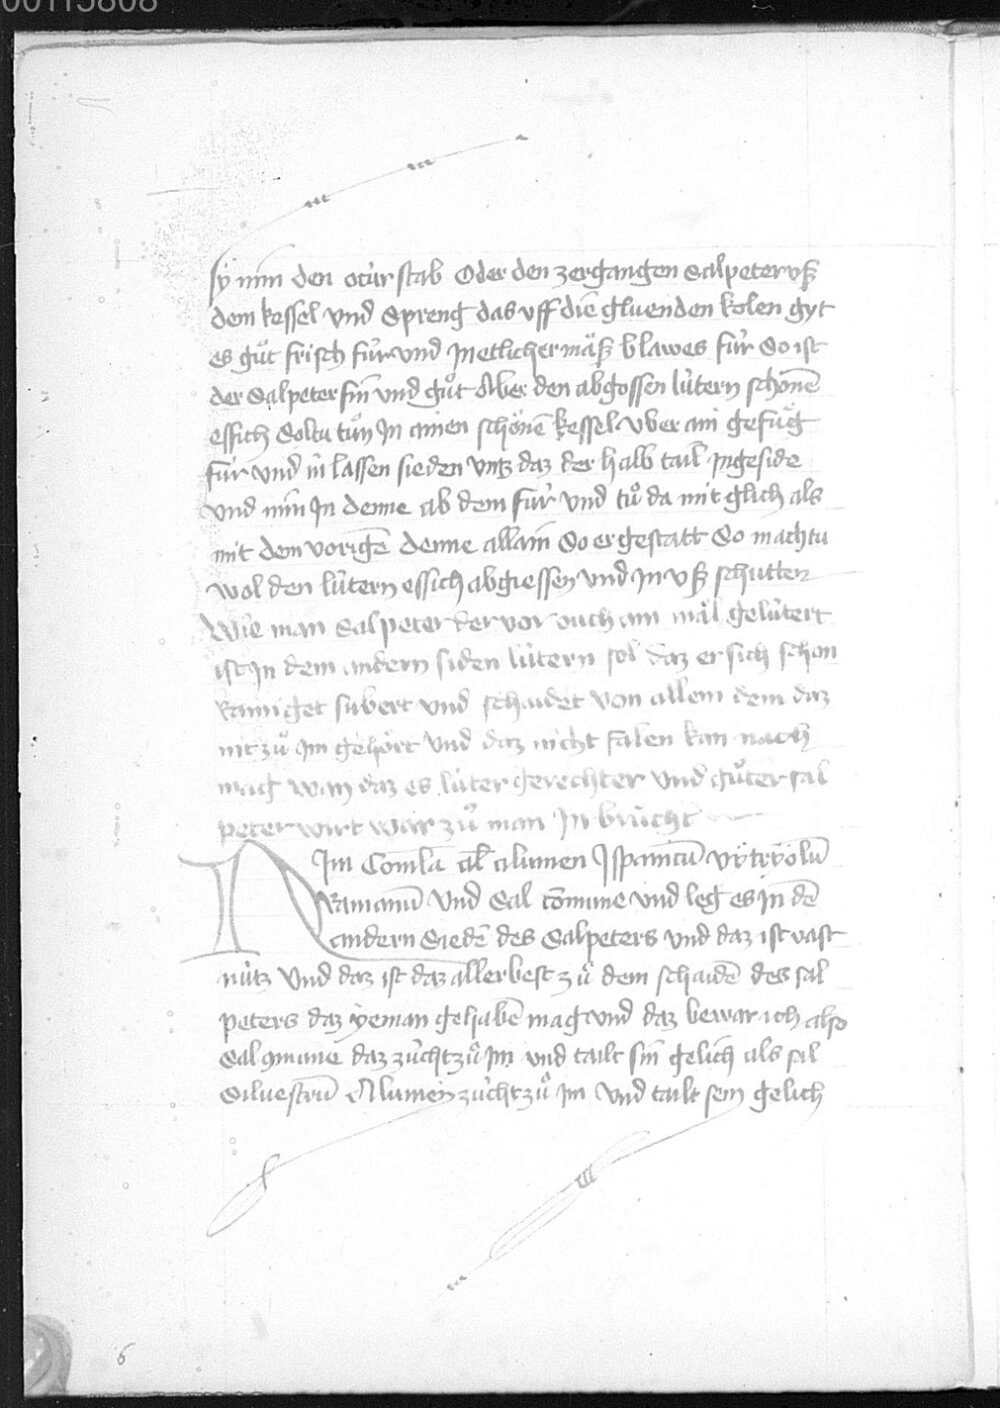 00115808
sy nim den ocùr stab Oder den zergangen Salpeter vß
dem kessel vnd Spreng das vff die gluenden kolen gyt
es gůt frisch fùr vnd In etlicher mäß blawes fùr So ist
der Salpeter fin vnd gůt Aber den abgossen lùtern schönē
essich Soltu tůn In ainen schönē kessel vber ain gefůg
fùr vnd in lassen sieden vntz daz der halb tail Ingeside
vnd nim In denne ab dem fùr vnd tů da mit glich als
mit dem vorigē denne allain So er gestatt So machtu
wol den lùtern essich abgiessen vnd In vß schutten
Wie man Salpeter der vor ouch ain mäl gelùtert
ist In dem andern siden lùtern sol daz er sich schon
Rainiget subert vnd schaidet von allem dem daz
nit zů Im gehört vnd daz nicht falen kan noch
mag wan daz es lùter gerechter vnd gůter sal
peter wirt war zů man In brùcht
NIm Comla al alumen Ispanicū vÿtrÿolū
Ramanū vnd Sal cōmune vnd leg es In dē
andern Siedē des Salpeters vnd daz ist vast
nùtz vnd daz ist daz aller best zů dem schaidē des sal
peters daz yeman gehabē mag vnd daz bewar ich also
Sal gmune daz zùcht zů Im vnd tailt sin gelich als sal
Siluestrū Alumen zùcht zů Im vnd tailt sein gelich
6